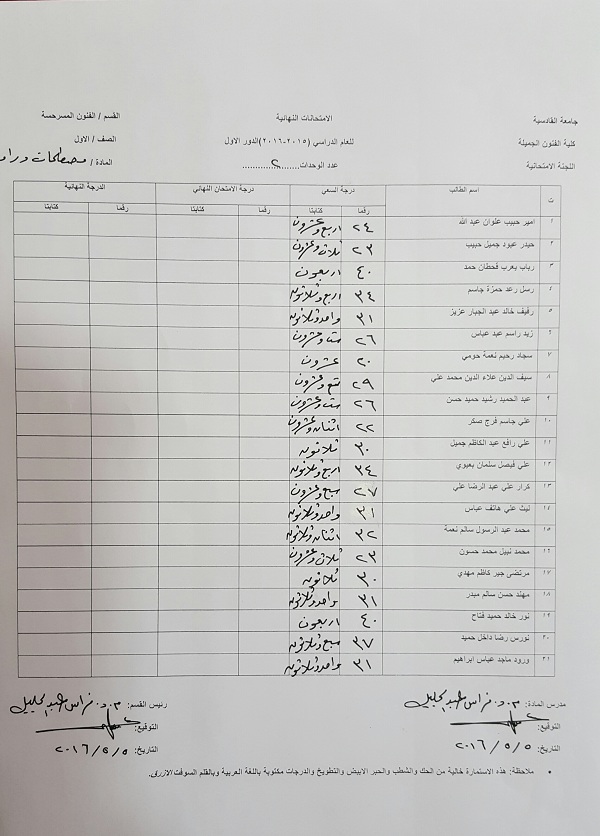 جامعة القادسية الامتحانات النهائية القسم / الفنون المسرحية
كلية الفنون الجميلة للعام الدراسي (٢٠١٥-٢٠١٦)الدور الاول الصف / الاول
اللجنة الامتحانية عدد الوحدات.......٢............ المادة / مصطلحات
ت اسم الطالب درجة السعي درجة الامتحان النهائي الدرجة النهائية
رقما كتابتا رقما كتابتا رقما كتابتا
١ امير حبيب علوان عبد الله ٢٤ اربع وعشرون
٢ حيدر عبود جميل حبيب ٢٣ ثلاث وعشرون
٣ رباب يعرب قحطان حمد ٤٠ اربعون
٤ رسل رعد حمزة جاسم ٣٤ اربع وثلاثون
٥ رفيف خالد عبد الجبار عزيز ٣١ واحد وثلاثون
٦ زيد راسم عبد عباس ٢٦ ست وعشرون
٧ سجاد رحيم نعمة حومي ٢٠ عشرون
٨ سيف الدين علاء الدين محمد علي ٢٩ تسع وعشرون
٩ عبد الحميد رشيد حميد حسن ٢٦ ست وعشرون
١٠ علي جاسم فرج صكر ٢٢ اثنان وعشرون
١١ علي رافع عبد الكاظم جميل ٣٠ ثلاثون
١٢ علي فيصل سلمان بعيوي ٣٤ اربع وثلاثون
١٣ كرار علي عبد الرضا علي ٢٧ سبع وعشرون
١٤ ليث علي هاتف عباس ٣١ واحد وثلاثون
١٥ محمد عبد الرسول سالم نعمة ٣٢ اثنان وثلاثون
١٦ محمد نبيل محمد حسون ٢٣ ثلاث وعشرون
١٧ مرتضى جبر كاظم مهدي ٣٠ ثلاثون
١٨ مهند حسن سالم مبدر ٣١ واحد وثلاثون
١٩ نور خالد حميد فتاح ٤٠ اربعون
٢٠ نورس رضا داخل حميد ٣٧ سبع وثلاثون
٢١ ورود ماجد عباس ابراهيم ٣١ واحد وثلاثون
مدرس المادة: م.د. فراس عبد الجليل رئيس القسم: م.د. فراس عبد الجليل
التوقيع: التوقيع:
التاريخ: ٢٠١٦/٥/٥ التاريخ: ٢٠١٦/٥/٥
• ملاحظة: هذه الاستمارة خالية من الحك والشطب والحبر الابيض والتطويخ والدرجات مكتوبة باللغة العربية وبالقلم السوفت الازرق.